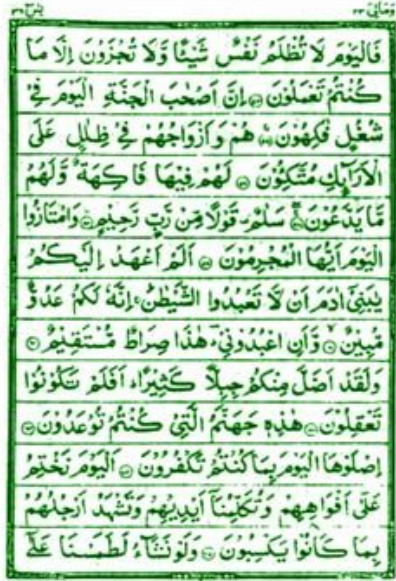 ومالى ٢٣ يس ٣٦
فَالْيَوْمَ لَا تُظْلَمُ نَفْسٌ شَيْئًا وَّلَا تُجْزَوْنَ اِلَّا مَا
كُنْتُمْ تَعْمَلُوْنَ ۝ اِنَّ اَصْحٰبَ الْجَنَّةِ الْيَوْمَ فِيْ
شُغُلٍ فٰكِهُوْنَ ۝ هُمْ وَاَزْوَاجُهُمْ فِيْ ظِلٰلٍ عَلَى
الْاَرَآئِكِ مُتَّكِئُوْنَ ۝ لَهُمْ فِيْهَا فَاكِهَةٌ وَّلَهُمْ
مَّا يَدَّعُوْنَ ۝ سَلٰمٌ قَوْلًا مِّنْ رَّبٍّ رَّحِيْمٍ ۝ وَامْتَازُوا
الْيَوْمَ اَيُّهَا الْمُجْرِمُوْنَ ۝ اَلَمْ اَعْهَدْ اِلَيْكُمْ
يٰبَنِيْٓ اٰدَمَ اَنْ لَّا تَعْبُدُوا الشَّيْطٰنَ اِنَّهٗ لَكُمْ عَدُوٌّ
مُّبِيْنٌ ۝ وَّاَنِ اعْبُدُوْنِيْ هٰذَا صِرَاطٌ مُّسْتَقِيْمٌ ۝
وَلَقَدْ اَضَلَّ مِنْكُمْ جِبِلًّا كَثِيْرًا اَفَلَمْ تَكُوْنُوْا
تَعْقِلُوْنَ ۝ هٰذِهٖ جَهَنَّمُ الَّتِيْ كُنْتُمْ تُوْعَدُوْنَ ۝
اِصْلَوْهَا الْيَوْمَ بِمَا كُنْتُمْ تَكْفُرُوْنَ ۝ اَلْيَوْمَ نَخْتِمُ
عَلٰٓى اَفْوَاهِهِمْ وَتُكَلِّمُنَآ اَيْدِيْهِمْ وَتَشْهَدُ اَرْجُلُهُمْ
بِمَا كَانُوْا يَكْسِبُوْنَ ۝ وَلَوْ نَشَآءُ لَطَمَسْنَا عَلٰٓى